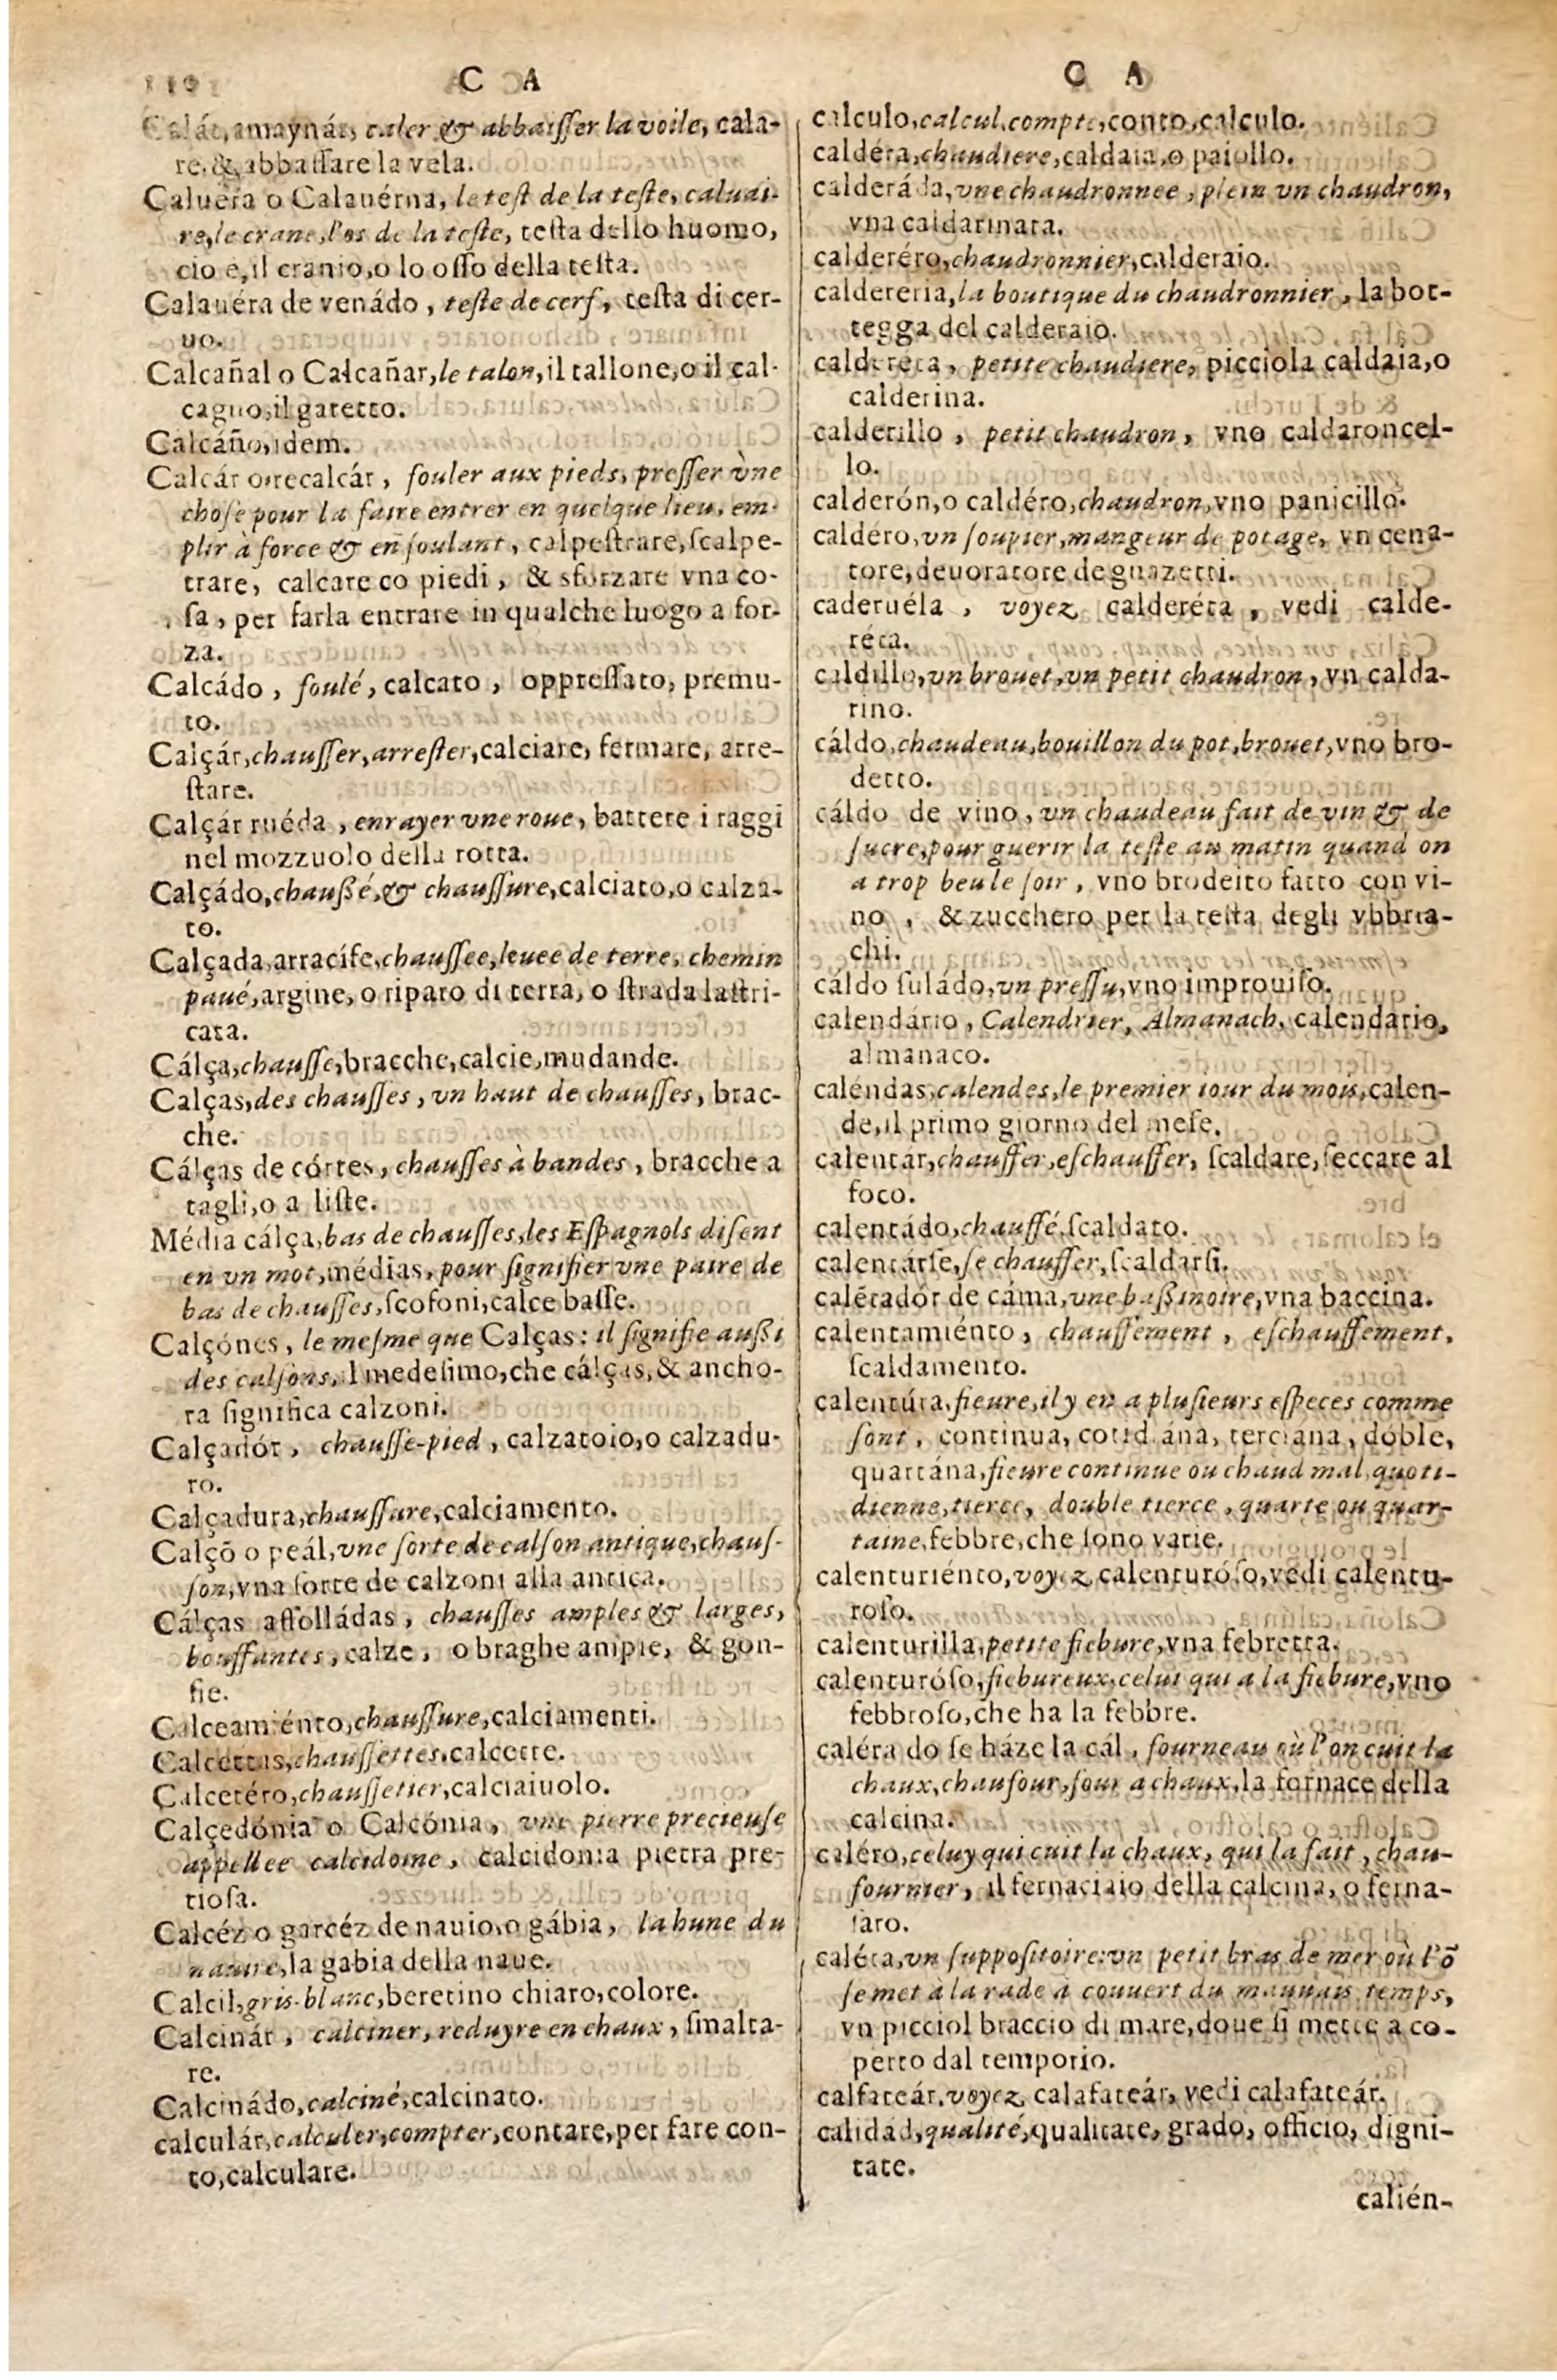 C A
Calár, amaynár, caler & abbaisser la voile, cala-
re, & abbassare la vela.
Caluera o Calauérna, le test de la teste, caluai-
re, le crane, l'os de la teste, testa dello huomo,
cio e, il cranio, o lo osso della testa.
Calauéra de venádo, teste de cerf, testa di cer-
uo.
Calcañal o Calcañar, le talon, il tallone, o il cal-
cagno, il garetto.
Calcáño, idem.
Calcár o, recalcár, fouler aux pieds, presser vne
chose pour la faire entrer en quelque lieu, em-
plir à force & en foulant, calpestrare, scalpe-
trare, calcare co piedi, & sforzare vna co-
sa, per farla entrare in qualche luogo a for-
za.
Calcádo, foulé, calcato, oppressato, premu-
to.
Calçár, chausser, arrester, calciare, fermare, arre-
stare.
Calçár ruéda, enrayer vne roue, battere i raggi
nel mozzuolo della rotta.
Calçádo, chaussé, & chaussure, calciato, o calza-
to.
Calçada, arracife, chaussee, leuee de terre, chemin
paué, argine, o riparo di terra, o strada lastri-
cata.
Cálça, chausse, bracche, calcie, mudande.
Calças, des chausses, vn haut de chausses, brac-
che.
Cálças de córtes, chausses à bandes, bracche a
tagli, o a liste.
Média cálça, bas de chausses, les Espagnols disent
en vn mot, médias, pour signifier vne paire de
bas de chausses, scofoni, calce basse.
Calçónes, le mesme que Calças: il signifie aussi
des calsons, il medesimo, che cálças, & ancho-
ra significa calzoni.
Calçadór, chausse-pied, calzatoio, o calzadu-
ro.
Calçadura, chaussure, calciamento.
Calçõ o peál, vne sorte de calson antique, chaus-
son, vna sorte de calzoni alla antica.
Cálças affolládas, chausses amples & larges,
bouffantes, calze, o braghe ampie, & gon-
fie.
Calceamiénto, chaussure, calciamenti.
Calcettas, chaussettes, calcette.
Calcetéro, chaussetier, calciaiuolo.
Calçedónia o Calcónia, vne pierre precieuse
appellee calcidoine, calcidonia pietra pre-
tiosa.
Calcéz o garcéz de nauio, o gábia, la hune du
nauire, la gabia della naue.
Calcil, gris-blanc, beretino chiaro, colore.
Calcinár, calciner, reduyre en chaux, smalta-
re.
Calcinádo, calciné, calcinato.
calculár, calculer, compter, contare, per fare con-
to, calculare.
C A
calculo, calcul, compte, conto, calculo.
caldéra, chaudiere, caldaia, o paiollo.
calderáda, vne chaudronnee, plein vn chaudron,
vna caldarinata.
calderéro, chaudronnier, calderaio.
caldereria, la boutique du chaudronnier, la bot-
tegga del calderaio.
caldereta, petite chaudiere, picciola caldaia, o
calderina.
calderillo, petit chaudron, vno caldaroncel-
lo.
calderón, o caldéro, chaudron, vno panicillo.
caldéro, vn soupier, mangeur de potage, vn cena-
tore, deuoratore de guazetti.
caderuéla, voyez calderéta, vedi calde-
réta.
caldillo, vn brouet, vn petit chaudron, vn calda-
rino.
cáldo, chaudeau, bouillon du pot, brouet, vno bro-
detto.
cáldo de vino, vn chaudeau fait de vin & de
sucre, pour guerir la teste au matin quand on
a trop beu le soir, vno brodeito fatto con vi-
no, & zucchero per la testa degli vbbria-
chi.
cáldo suládo, vn pressu, vno improuiso.
calendário, Calendrier, Almanach, calendario,
almanaco.
caléndas, calendes, le premier iour du mois, calen-
de, il primo giorno del mese.
calentár, chauffer, eschauffer, scaldare, seccare al
foco.
calentádo, chauffé, scaldato.
calentárse, se chauffer, scaldarsi.
calẽtadór de cáma, vne bassinoire, vna baccina.
calentamiénto, chauffement, eschauffement,
scaldamento.
calentúra, fieure, il y en a plusieurs especes comme
sont, continua, cotidiána, terciana, dóble,
quartána, fieure continue ou chaud mal, quoti-
dienne, tierce, double tierce, quarte ou quar-
taine, febbre, che sono varie.
calenturiénto, voyez calenturóso, vedi calentu-
roso.
calenturilla, petite fiebure, vna febretta.
calenturóso, fiebureux, celui qui a la fiebure, vno
febbroso, che ha la febbre.
caléra do se háze la cál, fourneau où l'on cuit la
chaux, chaufour, four a chaux, la fornace della
calcina.
caléro, celuy qui cuit la chaux, qui la fait, chau-
fournier, il fernaciaio della calcina, o ferna-
saro.
caléta, vn suppositoire: vn petit bras de mer où l'õ
se met à la rade à couuert du mauuais temps,
vn picciol braccio di mare, doue si mette a co-
perto dal temporio.
calfateár, voyez calafateár, vedi calafateár.
calidad, qualité, qualitate, grado, officio, digni-
tate.
calién-